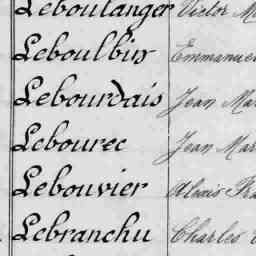 Leboulanger Victor
Leboulbin Emmanuel
Lebourdais Jean
Lebourec Jean
Lebouvier Alexis
Lebranchu Charles